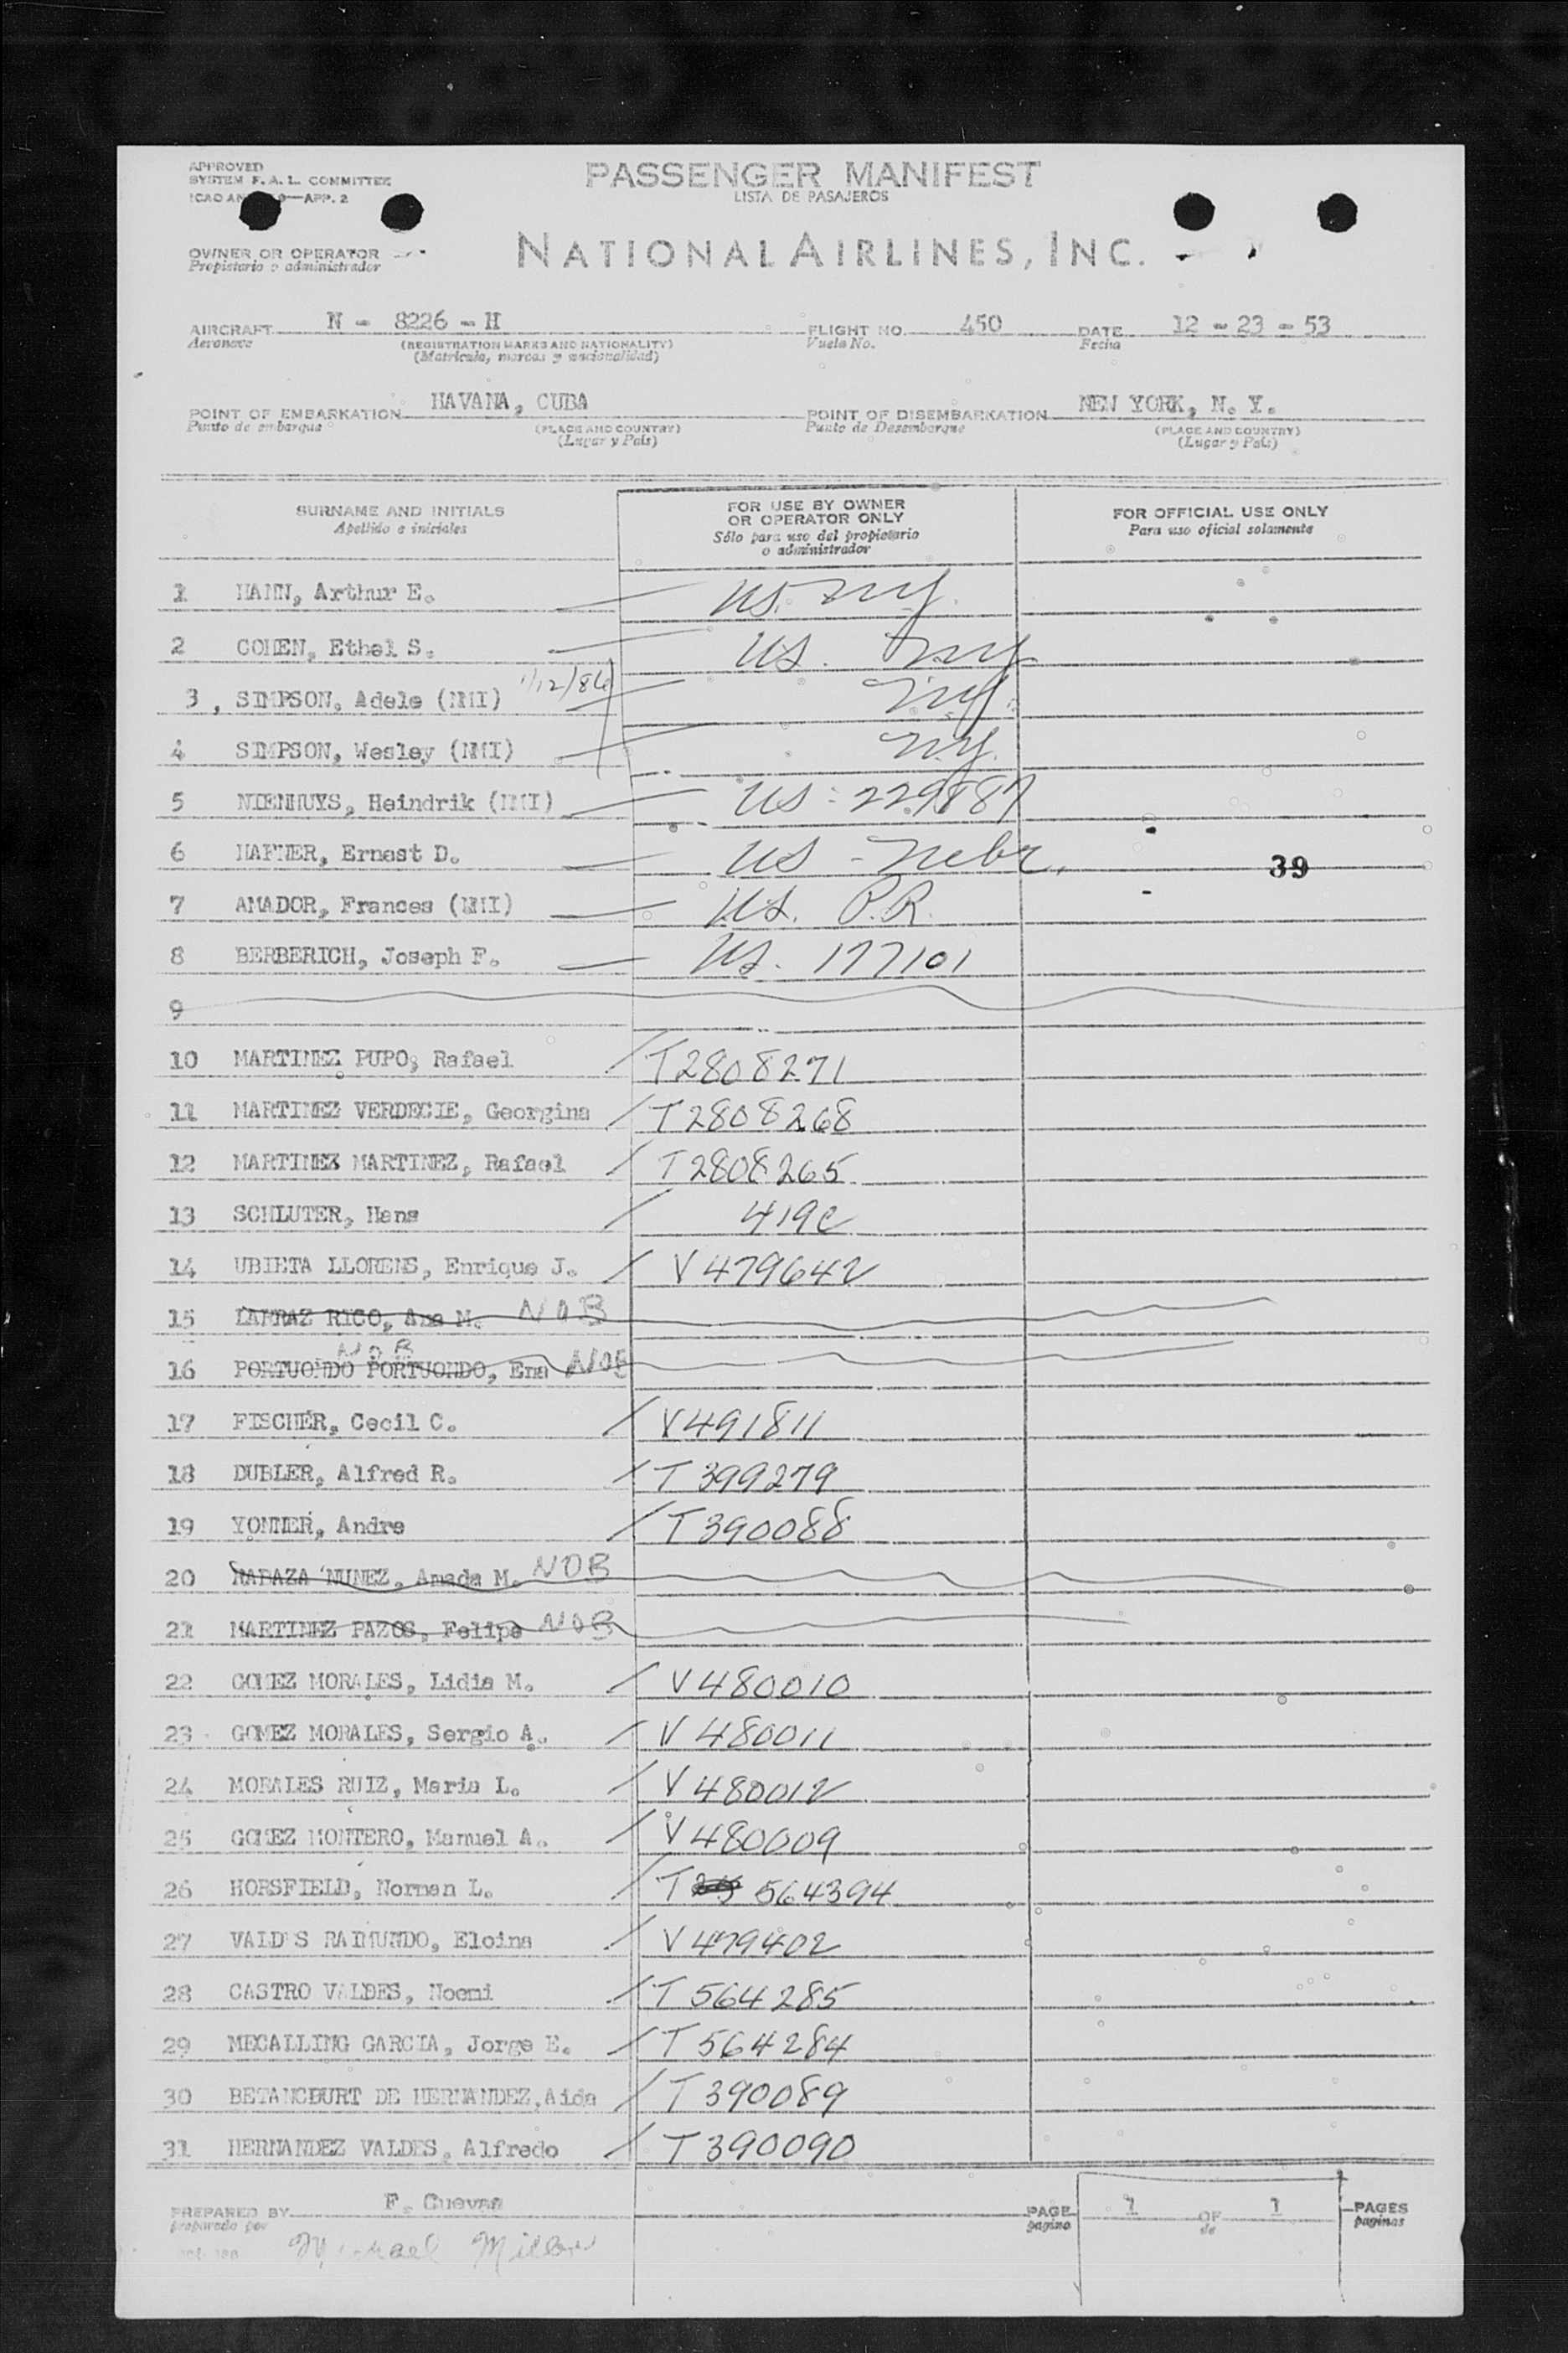 APPROVED
SYSTEM F. A. L. COMMITTEE
ICAO AN 9—APP. 2
PASSENGER MANIFEST
LISTA DE PASAJEROS
OWNER OR OPERATOR
Propietario o administrador
NATIONAL AIRLINES, INC.
AIRCRAFT N - 8226 - H FLIGHT NO. 450 DATE 12 - 23 - 53
Aeronave (REGISTRATION MARKS AND NATIONALITY) Vuelo No. Fecha
(Matricula, marcas y nacionalidad)
POINT OF EMBARKATION HAVANA, CUBA POINT OF DISEMBARKATION NEW YORK, N. Y.
Punto de embarque (PLACE AND COUNTRY) Punto de Desembarque (PLACE AND COUNTRY)
(Lugar y País) (Lugar y País)
SURNAME AND INITIALS FOR USE BY OWNER OR OPERATOR ONLY FOR OFFICIAL USE ONLY
Apellido e iniciales Sólo para uso del propietario o administrador Para uso oficial solamente
1 HANN, Arthur E. US. NY.
2 COHEN, Ethel S. US. NY
3, SIMPSON, Adele (NMI) 1/12/86 NY.
4 SIMPSON, Wesley (NMI) N.Y.
5 NIENHUYS, Heindrik (NMI) US: 229887
6 HAFNER, Ernest D. US - Nebr. 39
7 AMADOR, Frances (NMI) US. P.R.
8 BERBERICH, Joseph F. US. 177101
9
10 MARTINEZ PUPO, Rafael T2808271
11 MARTINEZ VERDECIE, Georgina T2808268
12 MARTINEZ MARTINEZ, Rafael T2808265
13 SCHLUTER, Hans 419c
14 UBIETA LLORENS, Enrique J. V479642
15 LARRAZ RICO, Ana M. NOB
NOB
16 PORTUONDO PORTUONDO, Ena NOB
17 FISCHER, Cecil C. V491811
18 DUBLER, Alfred R. T399279
19 YONNER, Andre T390088
20 RABAZA NUNEZ, Amada M. NOB
21 MARTINEZ PAZOS, Felipe NOB
22 GOMEZ MORALES, Lidia M. V480010
23 GOMEZ MORALES, Sergio A. V480011
24 MORALES RUIZ, Maria L. V480012
25 GOMEZ MONTERO, Manuel A. V480009
26 HORSFIELD, Norman L. T 564394
27 VALD S RAIMUNDO, Eloina V479402
28 CASTRO VALDES, Noemi T564285
29 MECALLING GARCIA, Jorge E. T564284
30 BETANCOURT DE HERNANDEZ, Aida T390089
31 HERNANDEZ VALDES, Alfredo T390090
PREPARED BY F. Cuevas PAGE 1 OF 1 PAGES
preparado por pagina de paginas
Michael Miller